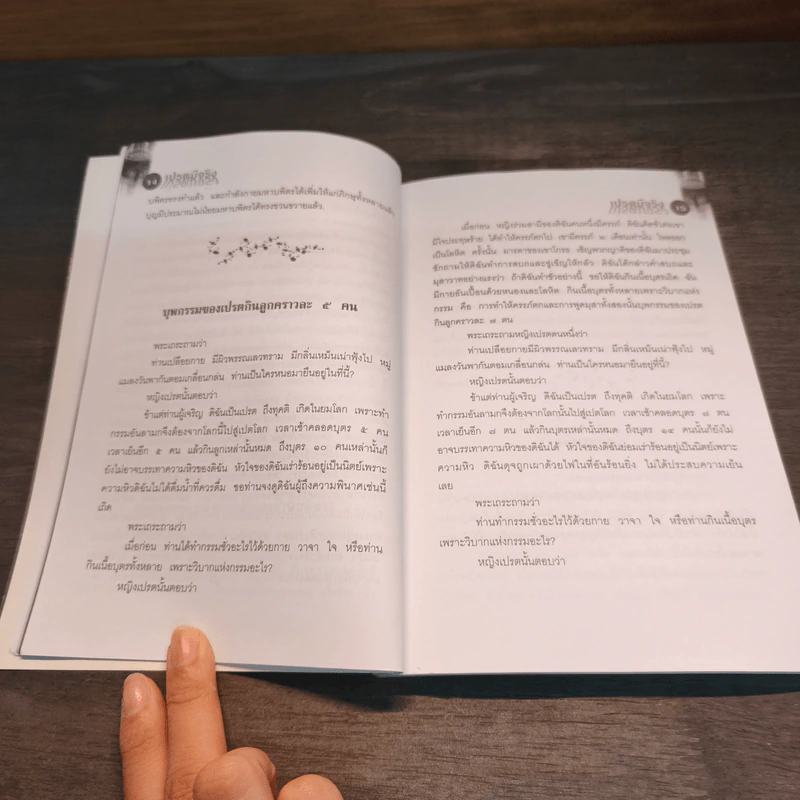 ๑๘ เปรตมีจริง
บพิตรทรงทำแล้ว และกำลังกายมหาบพิตรได้เพิ่มให้แก่ภิกษุทั้งหลายแล้ว
บุญมีประมาณไม่น้อยมหาบพิตรได้ทรงขวนขวายแล้ว.
บุพกรรมของเปรตกินลูกคราวละ ๕ ตน
พระเถระถามว่า
ท่านเปลือยกาย มีผิวพรรณเลวทราม มีกลิ่นเหม็นเน่าฟุ้งไป หมู่
แมลงวันพากันตอมเกลื่อนกล่น ท่านเป็นใครหนอมายืนอยู่ในที่นี้?
หญิงเปรตนั้นตอบว่า
ข้าแต่ท่านผู้เจริญ ดิฉันเป็นเปรต ถึงทุคติ เกิดในยมโลก เพราะทำ
กรรมอันลามกจึงต้องจากโลกนี้ไปสู่เปตโลก เวลาเช้าคลอดบุตร ๕ ตน
เวลาเย็นอีก ๕ ตน แล้วกินลูกเหล่านั้นหมด ถึงบุตร ๑๐ ตนเหล่านั้นก็
ยังไม่อาจบรรเทาความหิวของดิฉัน หัวใจของดิฉันเร่าร้อนอยู่เป็นนิตย์เพราะ
ความหิวดิฉันไม่ได้ดื่มน้ำที่ควรดื่ม ขอท่านจงดูดิฉันผู้ถึงความพินาศเช่นนี้
เถิด
พระเถระถามว่า
เมื่อก่อน ท่านได้ทำกรรมชั่วอะไรไว้ด้วยกาย วาจา ใจ หรือท่าน
กินเนื้อบุตรทั้งหลาย เพราะวิบากแห่งกรรมอะไร?
หญิงเปรตนั้นตอบว่า
เปรตมีจริง ๑๙
เมื่อก่อน หญิงร่วมสามีของดิฉันคนหนึ่งมีครรภ์ ดิฉันคิดชั่วต่อเขา
มีใจประทุษร้าย ได้ทำให้ครรภ์ตกไป เขามีครรภ์ ๒ เดือนเท่านั้น ไหลออก
เป็นโลหิต ครั้งนั้น มารดาของเขาโกรธ เชิญพวกญาติของดิฉันมาประชุม
ซักถามให้ดิฉันทำการสบถและขู่เข็ญให้กลัว ดิฉันได้กล่าวคำสบถและ
มุสาวาทอย่างแรงว่า ถ้าดิฉันทำชั่วอย่างนี้ ขอให้ดิฉันกินเนื้อบุตรเถิด ฉัน
มีกายอันเปื้อนด้วยหนองและโลหิต กินเนื้อบุตรทั้งหลายเพราะวิบากแห่ง
กรรม คือ การทำให้ครรภ์ตกและการพูดมุสาทั้งสองนั้นบุพกรรมของเปรต
กินลูกคราวละ ๗ ตน
พระเถระถามหญิงเปรตตนหนึ่งว่า
ท่านเปลือยกายมีผิวพรรณเลวทราม มีกลิ่นเหม็นเน่าฟุ้งไป หมู่
แมลงวันพากันตอมเกลื่อนกล่น ท่านเป็นใครหนอมายืนอยู่ในที่นี้?
หญิงเปรตนั้นตอบว่า
ข้าแต่ท่านผู้เจริญ ดิฉันเป็นเปรต ถึงทุคติ เกิดในยมโลก เพราะ
ทำกรรมอันลามกจึงต้องจากโลกนี้ไปสู่เปตโลก เวลาเช้าคลอดบุตร ๗ ตน
เวลาเย็นอีก ๗ ตน แล้วกินบุตรเหล่านั้นหมด ถึงบุตร ๑๔ ตนนั้นก็ยังไม่
อาจบรรเทาความหิวของดิฉันได้ หัวใจของดิฉันย่อมเร่าร้อนอยู่เป็นนิตย์เพราะ
ความหิว ดิฉันดุจถูกเผาด้วยไฟในที่อันร้อนยิ่ง ไม่ได้ประสบความเย็น
เลย
พระเถระถามว่า
ท่านทำกรรมชั่วอะไรไว้ด้วยกาย วาจา ใจ หรือท่านกินเนื้อบุตร
เพราะวิบากแห่งกรรมอะไร?
หญิงเปรตนั้นตอบว่า